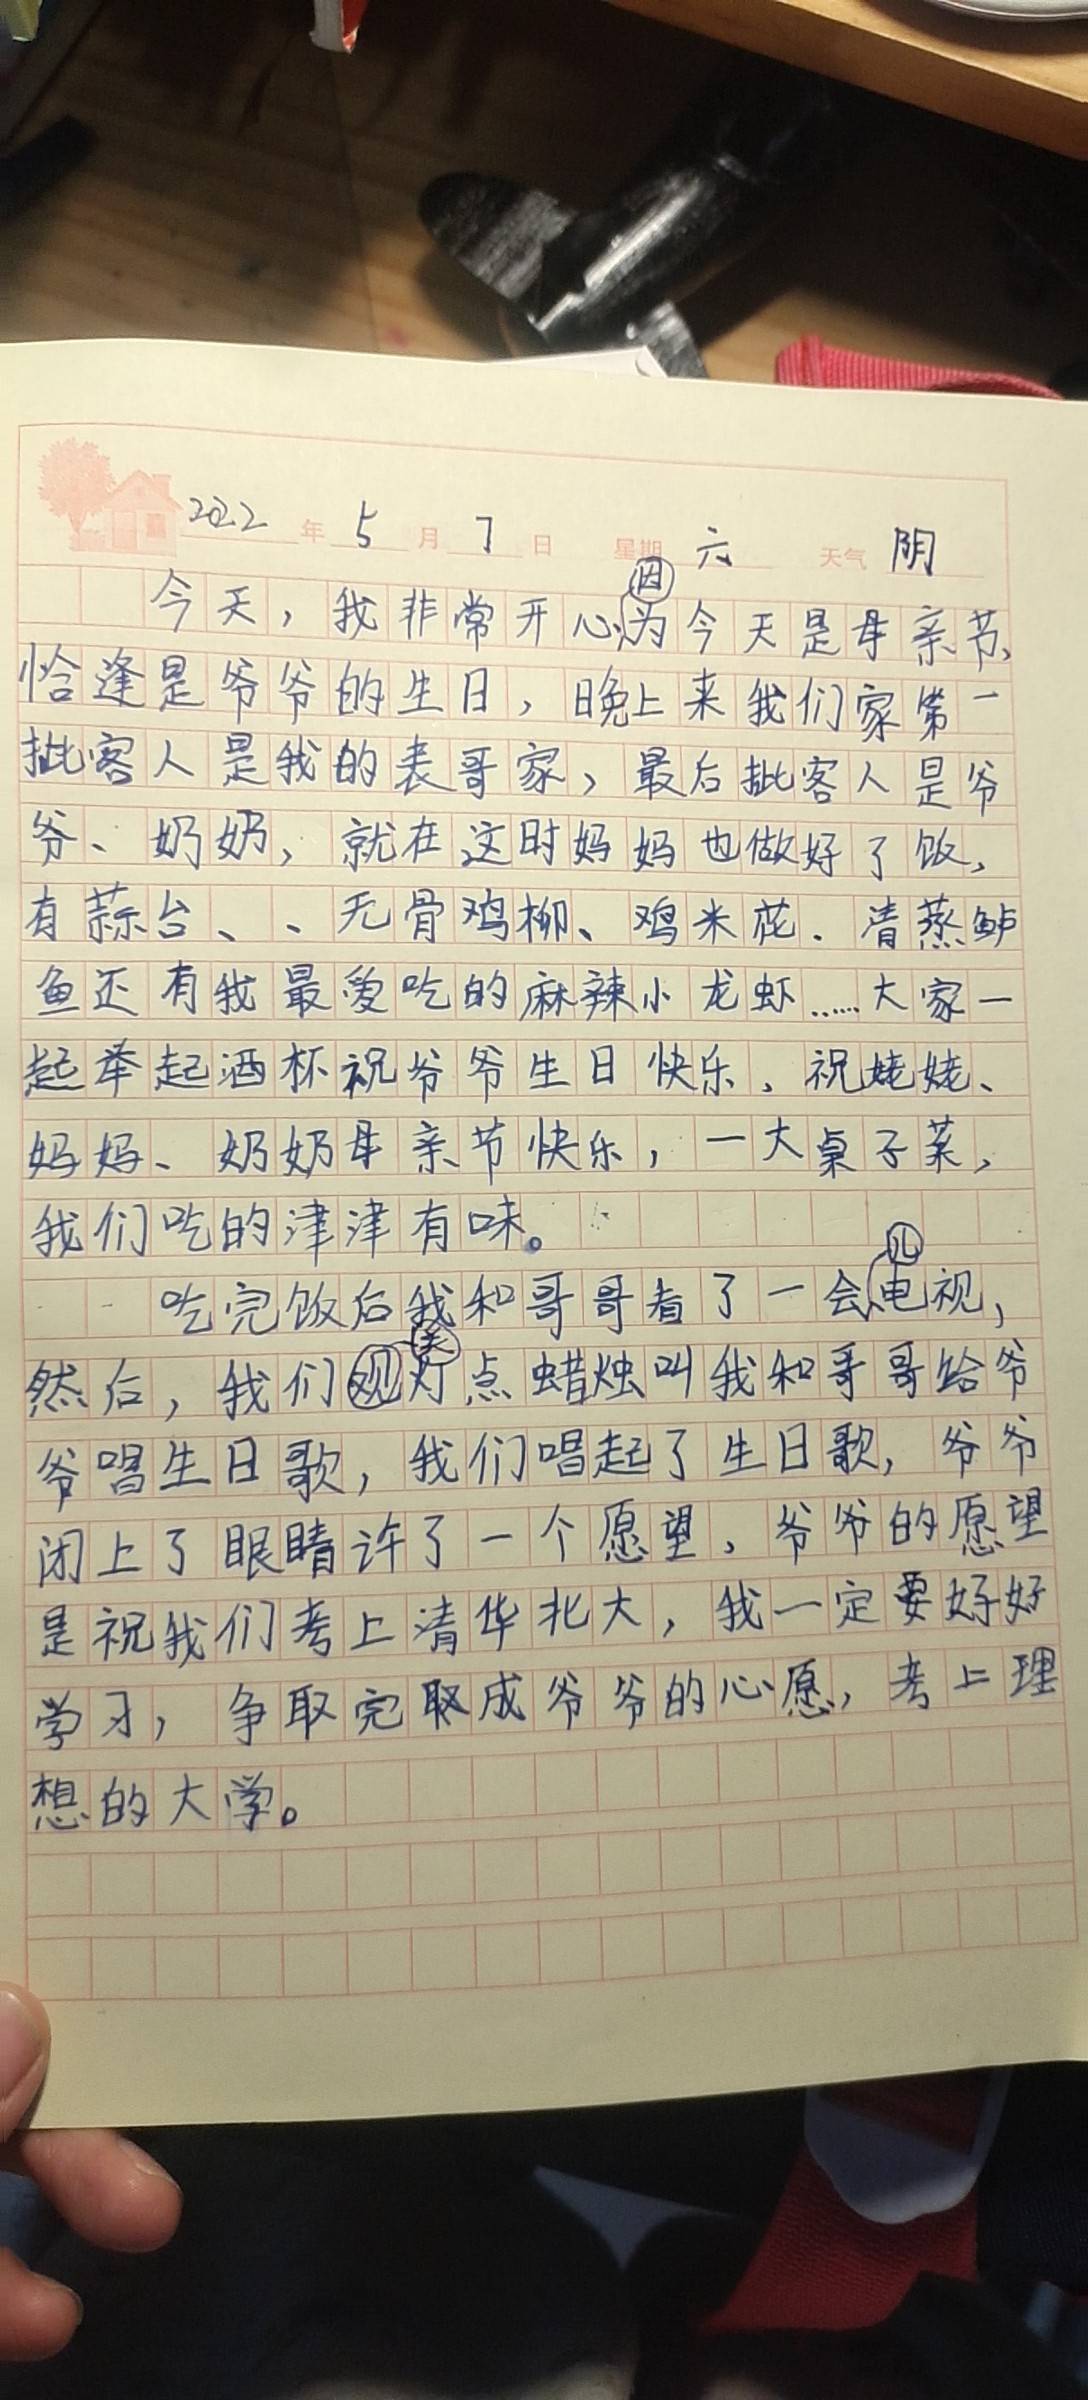 2022年5月7日 星期六 天气阴
今天，我非常开心，因为今天是母亲节、
恰逢是爷爷的生日，晚上来我们家第一
批客人是我的表哥家，最后批客人是爷
爷、奶奶，就在这时妈妈也做好了饭，
有蒜台、、无骨鸡柳、鸡米花、清蒸鲈
鱼还有我最爱吃的麻辣小龙虾……大家一
起举起酒杯祝爷爷生日快乐、祝姥姥、
妈妈、奶奶母亲节快乐，一大桌子菜，
我们吃的津津有味。
吃完饭后我和哥哥看了一会儿电视，
然后，我们关灯点蜡烛叫我和哥哥给爷
爷唱生日歌，我们唱起了生日歌，爷爷
闭上了眼睛许了一个愿望，爷爷的愿望
是祝我们考上清华北大，我一定要好好
学习，争取完成爷爷的心愿，考上理
想的大学。